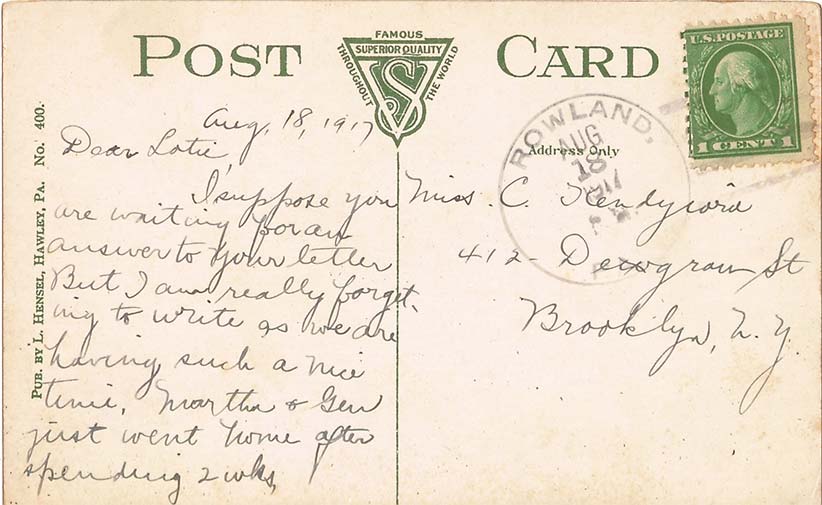 POST CARD
FAMOUS
SUPERIOR QUALITY
THROUGHOUT
THE WORLD
VS
U.S. POSTAGE
1 CENT 1
ROWLAND,
AUG
18
Address Only
PUB. BY L. HENSEL, HAWLEY, PA. No. 400.
Aug. 18, 1917
Dear Lotie,
I suppose you
are waiting for an
answer to your letter
But I am really forget-
ing to write as we are
having such a nice
time. Martha & Gen
just went home after
spending 2 wks,
Miss. C.
412- St
Brooklyn, N. Y.